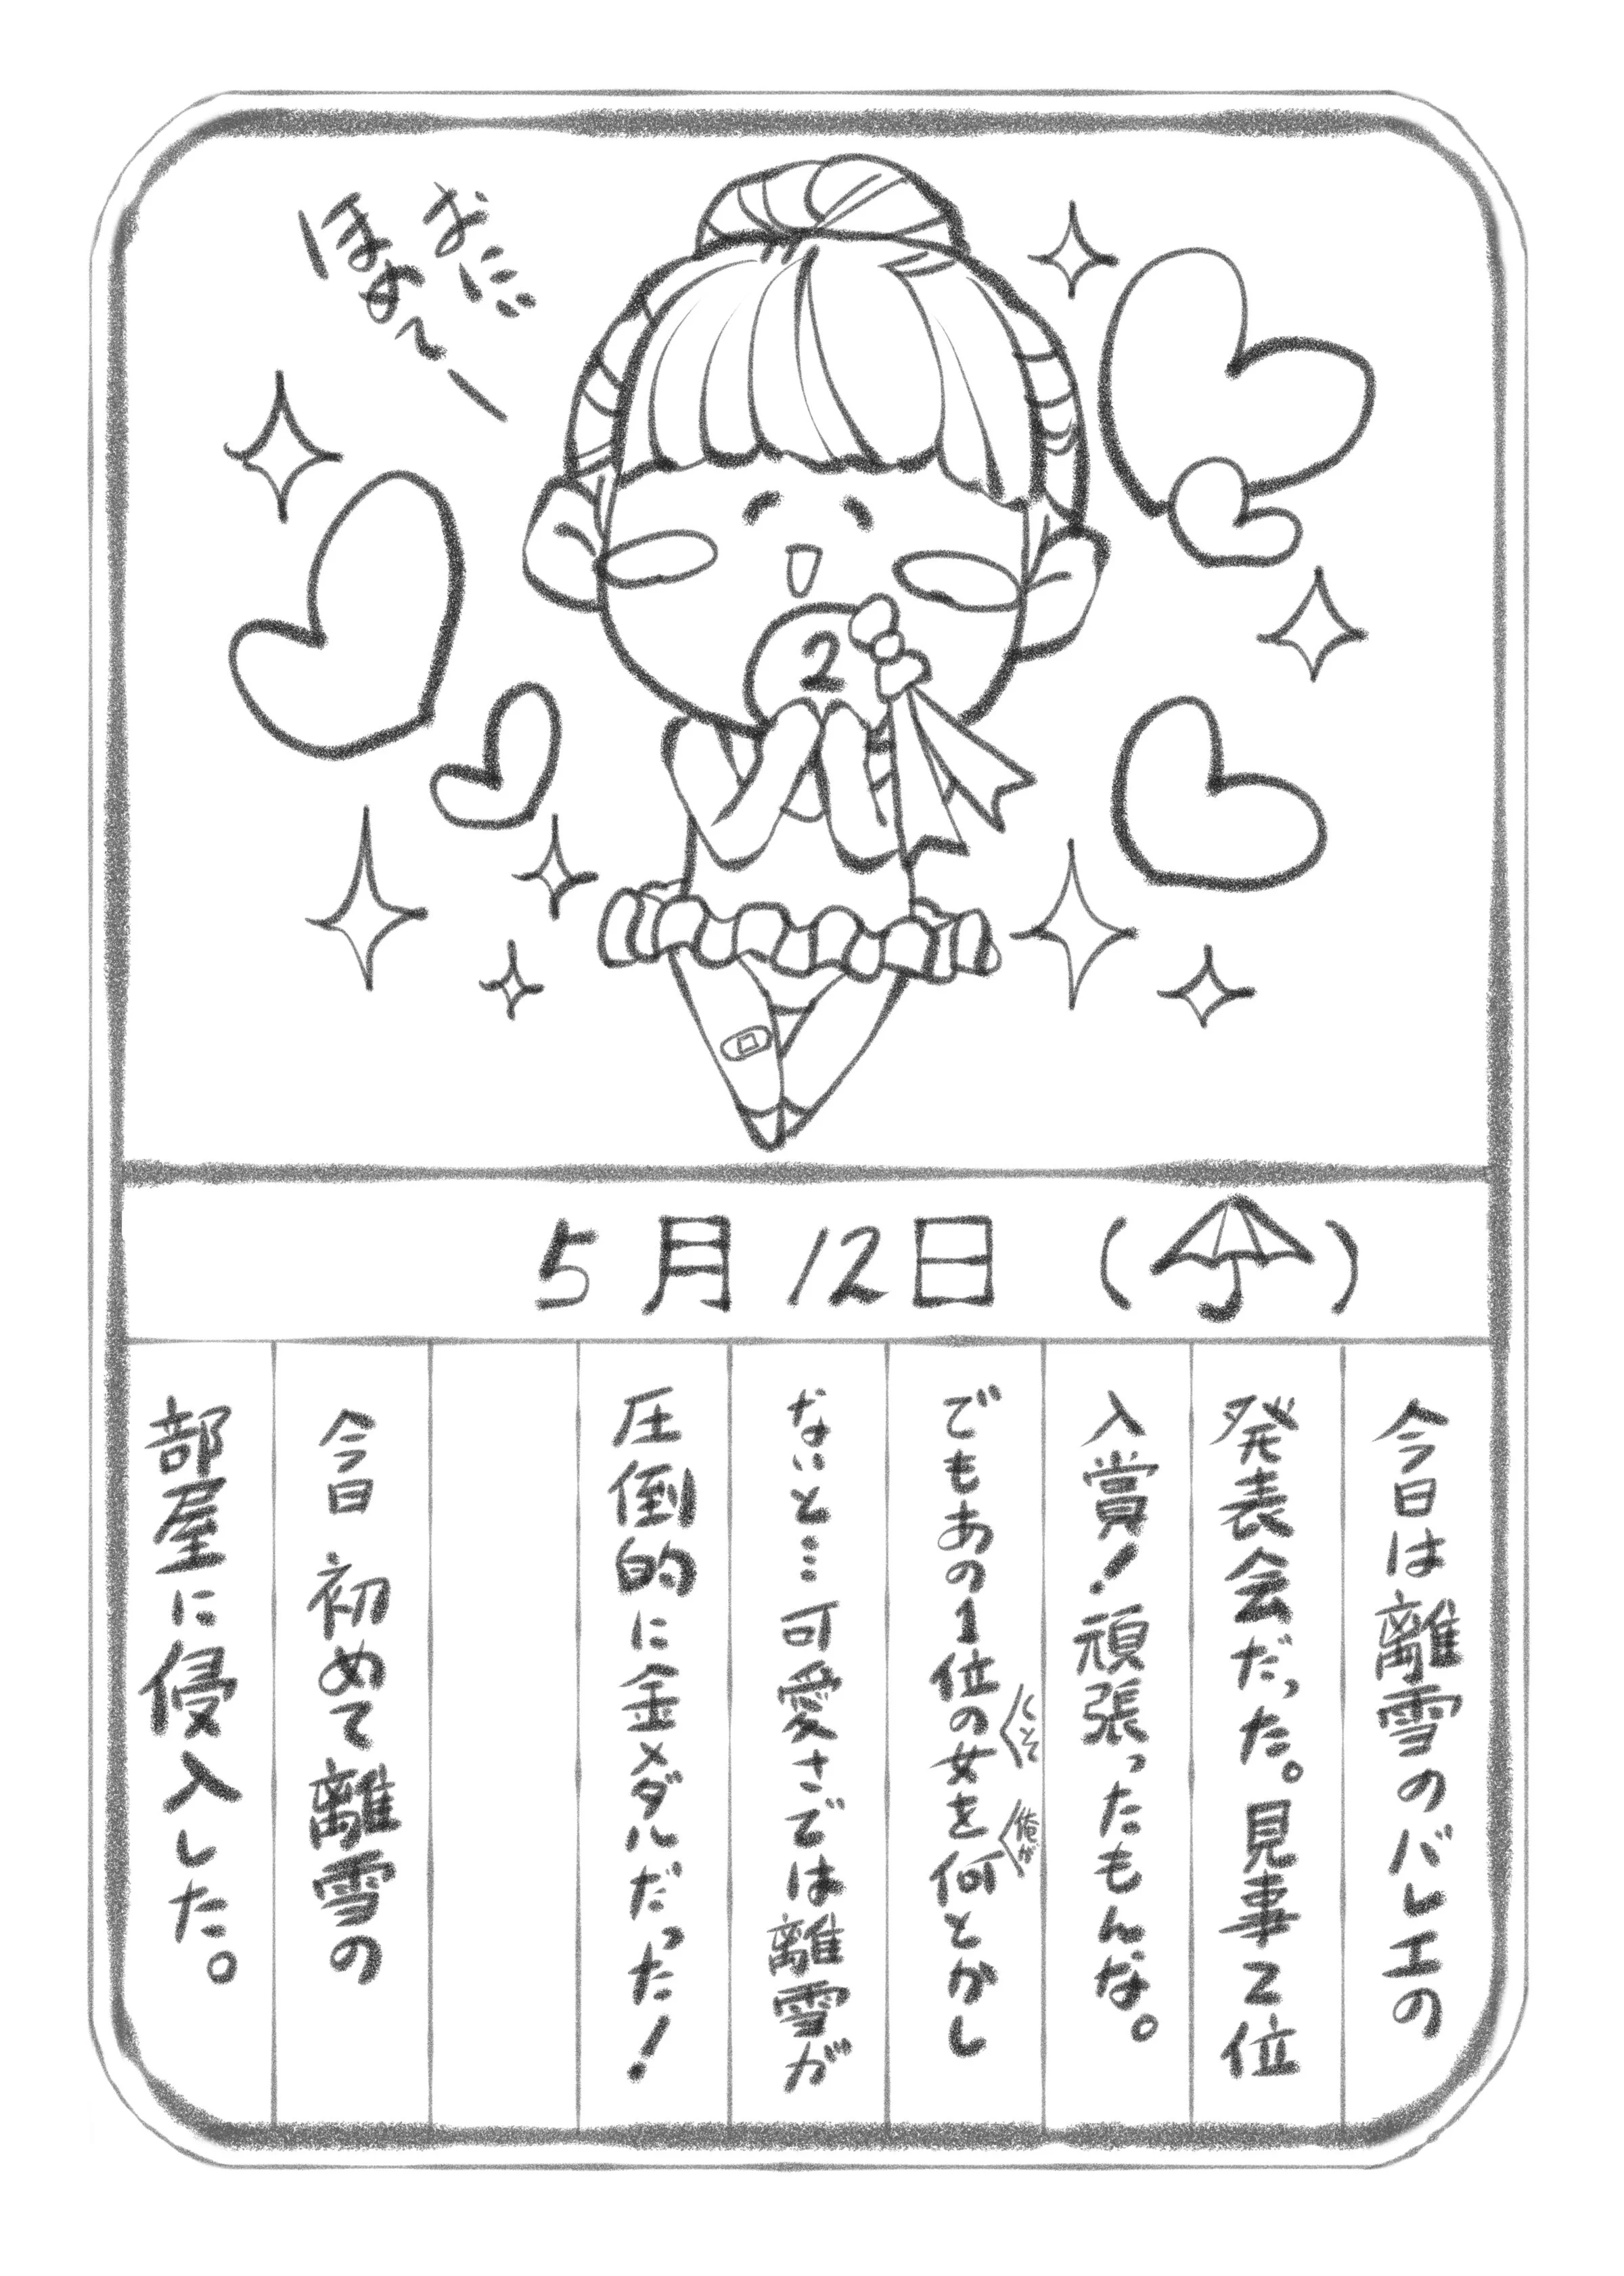 おにい
ほめて〜
2
5月12日（☂）
今日は離雪のバレエの
発表会だった。見事2位
入賞！頑張ったもんな。
でもあの1位の女を何とかし
俺が
ないと…可愛さでは離雪が
圧倒的に金メダルだった！
今日 初めて離雪の
部屋に侵入した。